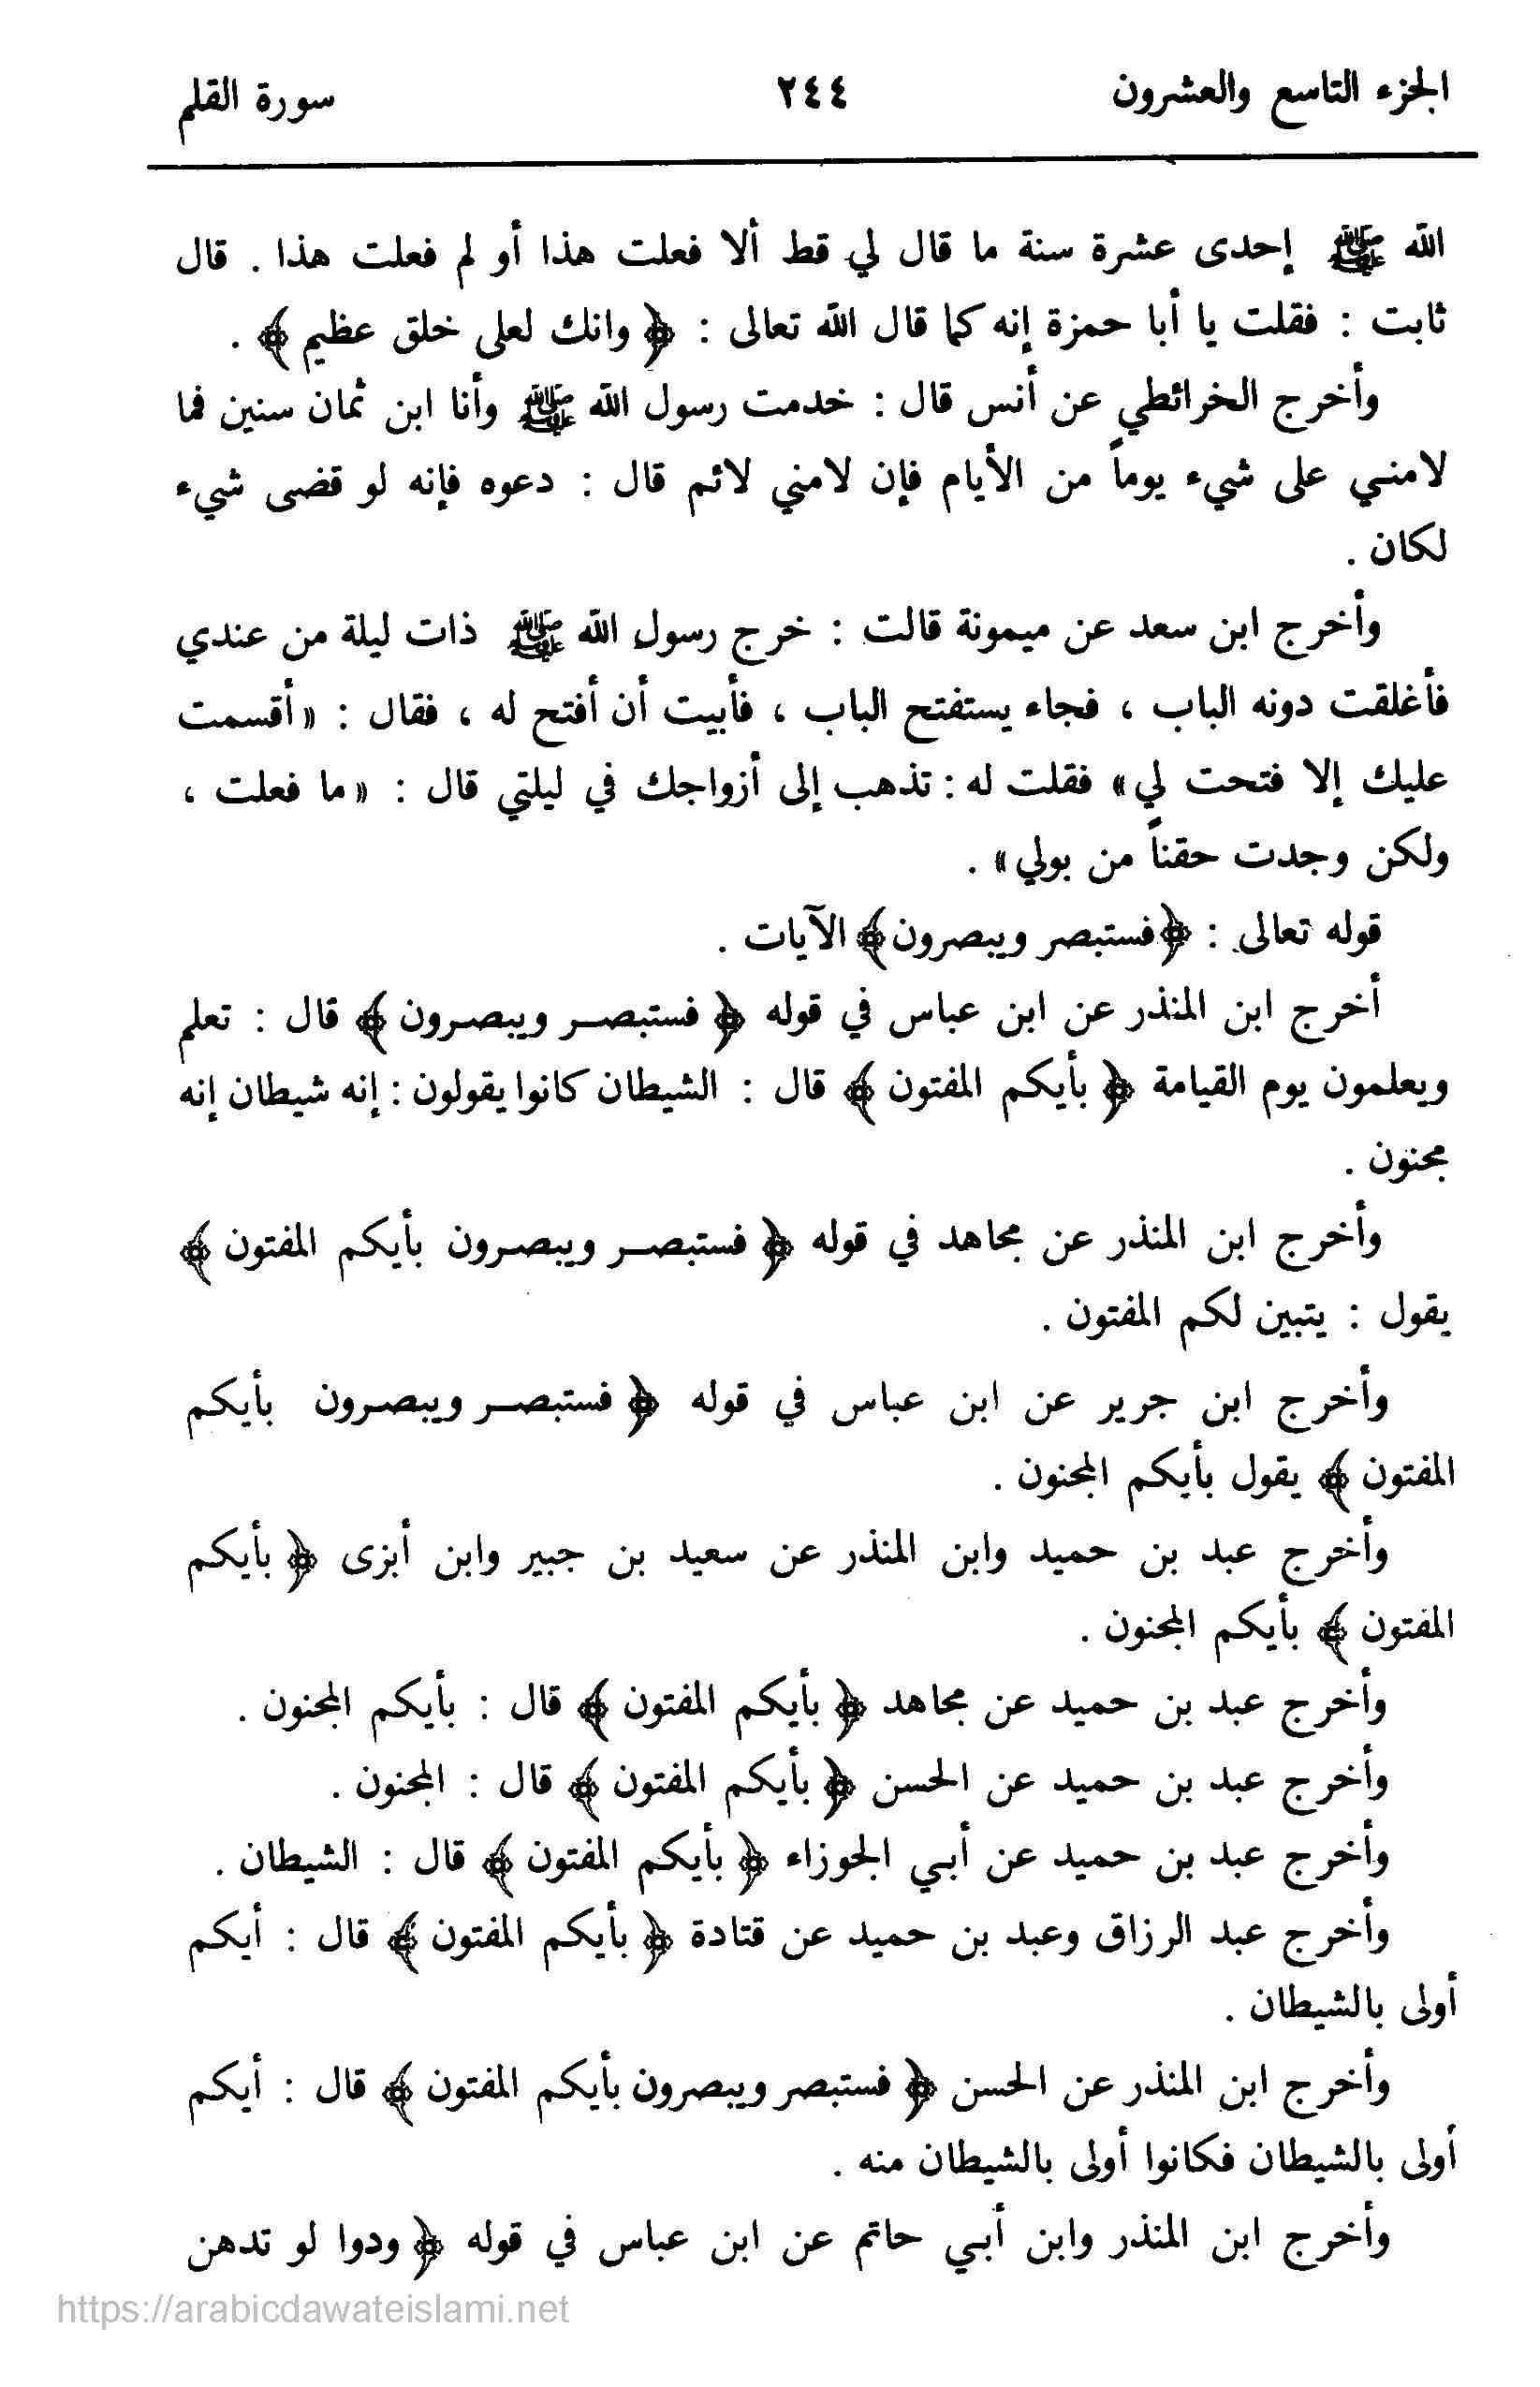 الجزء التاسع والعشرون ٢٤٤ سورة القلم
الله ﷺ إحدى عشرة سنة ما قال لي قط ألا فعلت هذا أو لم فعلت هذا . قال
ثابت : فقلت يا أبا حمزة إنه كما قال الله تعالى : ﴿ وانك لعلى خلق عظيم ﴾ .
وأخرج الخرائطي عن أنس قال : خدمت رسول الله ﷺ وأنا ابن ثمان سنين فما
لامني على شيء يوماً من الأيام فإن لامني لائم قال : دعوه فإنه لو قضى شيء
لكان .
وأخرج ابن سعد عن ميمونة قالت : خرج رسول الله ﷺ ذات ليلة من عندي
فأغلقت دونه الباب ، فجاء يستفتح الباب ، فأبيت أن أفتح له ، فقال : « أقسمت
عليك إلا فتحت لي » فقلت له : تذهب إلى أزواجك في ليلتي قال : « ما فعلت ،
ولكن وجدت حقناً من بولي » .
قوله تعالى : ﴿فستبصر ويبصرون﴾ الآيات .
أخرج ابن المنذر عن ابن عباس في قوله ﴿ فستبصر ويبصرون ﴾ قال : تعلم
ويعلمون يوم القيامة ﴿ بأيكم المفتون ﴾ قال : الشيطان كانوا يقولون : إنه شيطان إنه
مجنون .
وأخرج ابن المنذر عن مجاهد في قوله ﴿ فستبصر ويبصرون بأيكم المفتون ﴾
يقول : يتبين لكم المفتون .
وأخرج ابن جرير عن ابن عباس في قوله ﴿ فستبصر ويبصرون بأيكم
المفتون ﴾ يقول بأيكم المجنون .
وأخرج عبد بن حميد وابن المنذر عن سعيد بن جبير وابن أبزى ﴿ بأيكم
المفتون ﴾ بأيكم المجنون .
وأخرج عبد بن حميد عن مجاهد ﴿ بأيكم المفتون ﴾ قال : بأيكم المجنون .
وأخرج عبد بن حميد عن الحسن ﴿ بأيكم المفتون ﴾ قال : المجنون .
وأخرج عبد بن حميد عن أبي الجوزاء ﴿ بأيكم المفتون ﴾ قال : الشيطان .
وأخرج عبد الرزاق وعبد بن حميد عن قتادة ﴿ بأيكم المفتون ﴾ قال : أيكم
أولى بالشيطان .
وأخرج ابن المنذر عن الحسن ﴿ فستبصر ويبصرون بأيكم المفتون ﴾ قال : أيكم
أولى بالشيطان فكانوا أولى بالشيطان منه .
وأخرج ابن المنذر وابن أبي حاتم عن ابن عباس في قوله ﴿ ودوا لو تدهن
https://arabicdawateislami.net